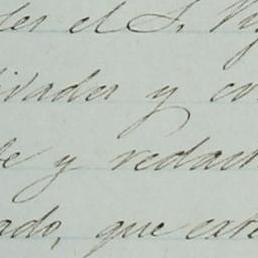 des el S. Vi
ivados y co
te y redact
ado, que exte